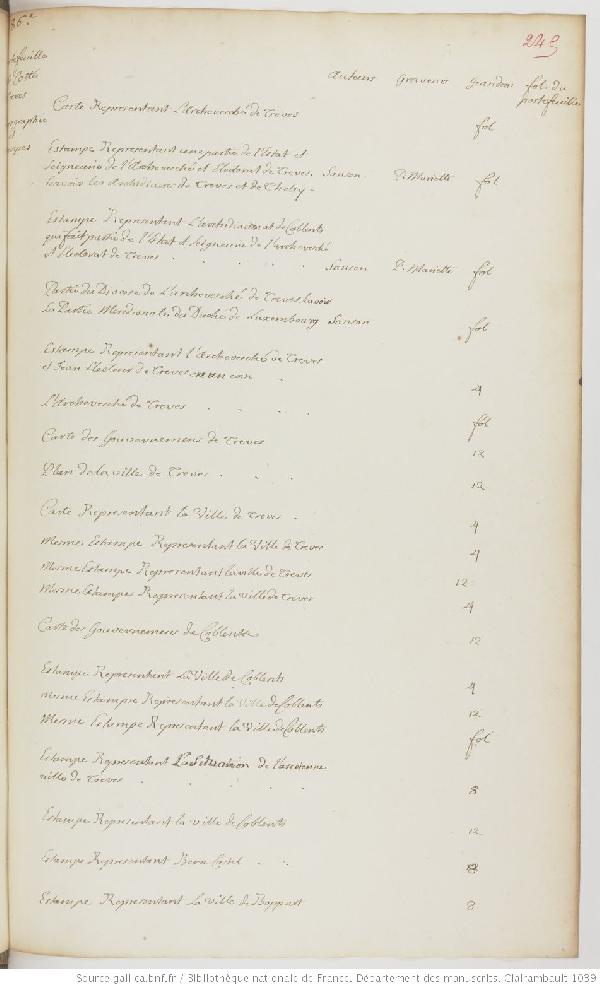 86.e
249
Auteurs Graveurs Grandeur fol. du
portefeuille
Carte Representant L'Archevesché de Treves
fol
Estampe Representant une partie de l'Estat et
Seigneurie de l'Archevesché et Electorat de Treves, Sanson P. Mariette fol
sçavoir Les Archidiacres de Treves et de
Estampe Representant L'archidiaconat de Coblents
qui fait partie de l'Estat et Seigneurie de l'archevesché
et Electorat de Treves Sanson P. Mariette fol
Partie du Diocese de L'archevesché de Treves
La Partie Meridionale du Duché de Luxembourg Sanson fol
Estampe Representant l'Archevesché de Treves
et Jean Electeur de Treves
4
L'Archevesché de Treves
fol
Carte des Gouvernemens de Treves
12
Plan de la ville de Treves
12
Carte Representant la Ville de Treves
4
Mesme Estampe Representant la Ville de Treves
4
Mesme Estampe Representant la ville de Treves
12
Mesme Estampe Representant la ville de Treves
4
Carte des Gouvernemens de Coblents
12
Estampe Representant La Ville de Coblents
4
Mesme Estampe Representant la Ville de Coblents
12
Mesme Estampe Representant la Ville de Coblents
fol
Estampe Representant La Situation de l'ancienne
ville de Treves
8
Estampe Representant la ville de Coblents
12
Estampe Representant Bern Castel
8
Estampe Representant la ville de Boppart
8
Source gallica.bnf.fr / Bibliothèque nationale de France. Département des manuscrits. Clairambault 1039